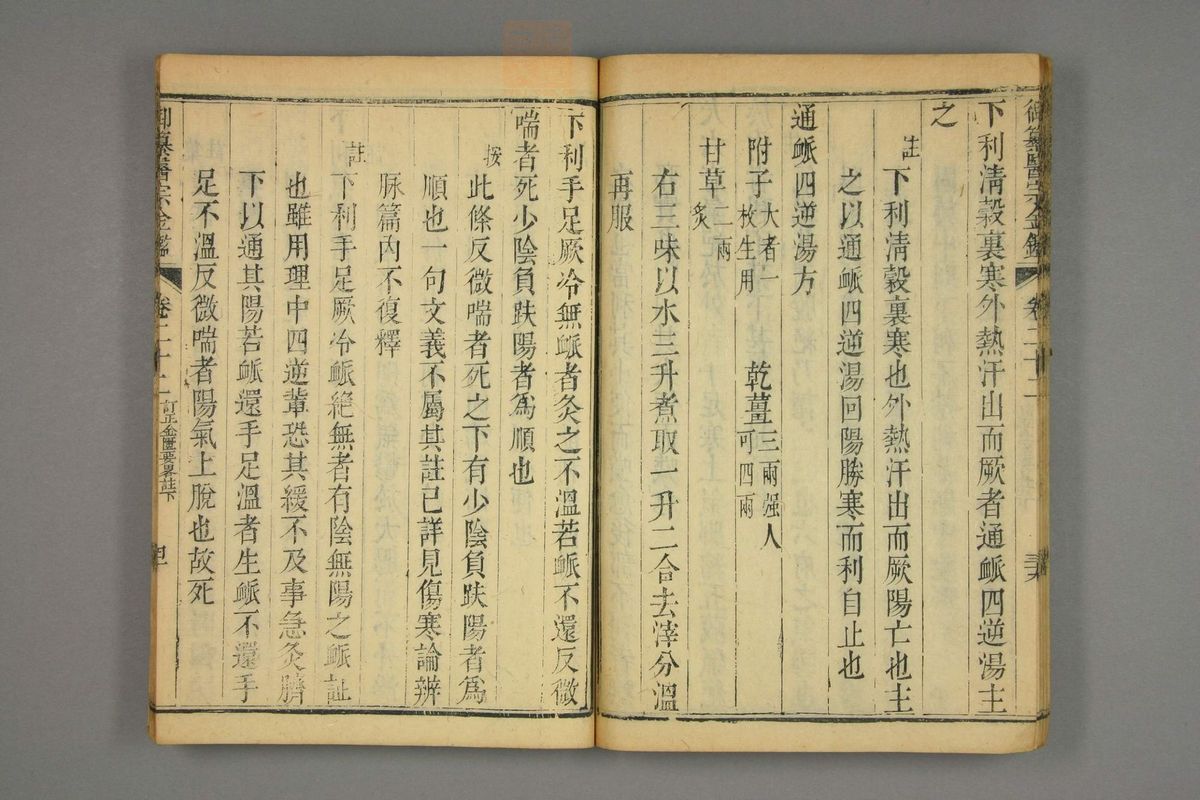 御纂醫宗金鑑 卷二十二
下利清穀裏寒外熱汗出而厥者通脈四逆湯主
之
註
下利清穀裏寒也外熱汗出而厥陽亡也主
之以通脈四逆湯回陽勝寒而利自止也
通脈四逆湯方
附子大者一枚生用 乾薑三兩强人可四兩
甘草二兩炙
右三味以水三升煮取一升二合去滓分溫
再服
下利手足厥冷無脈者灸之不溫若脈不還反微
喘者死少陰負趺陽者爲順也
按
此條反微喘者死之下有少陰負趺陽者爲
順也一句文義不屬其註已詳見傷寒論辨
脉篇內不復釋
註
下利手足厥冷脈絕無者有陰無陽之脈証
也雖用理中四逆輩恐其緩不及事急灸臍
下以通其陽若脈還手足溫者生脈不還手
足不溫反微喘者陽氣上脫也故死
御纂醫宗金鑑 卷二十二 訂正金匱要畧註下